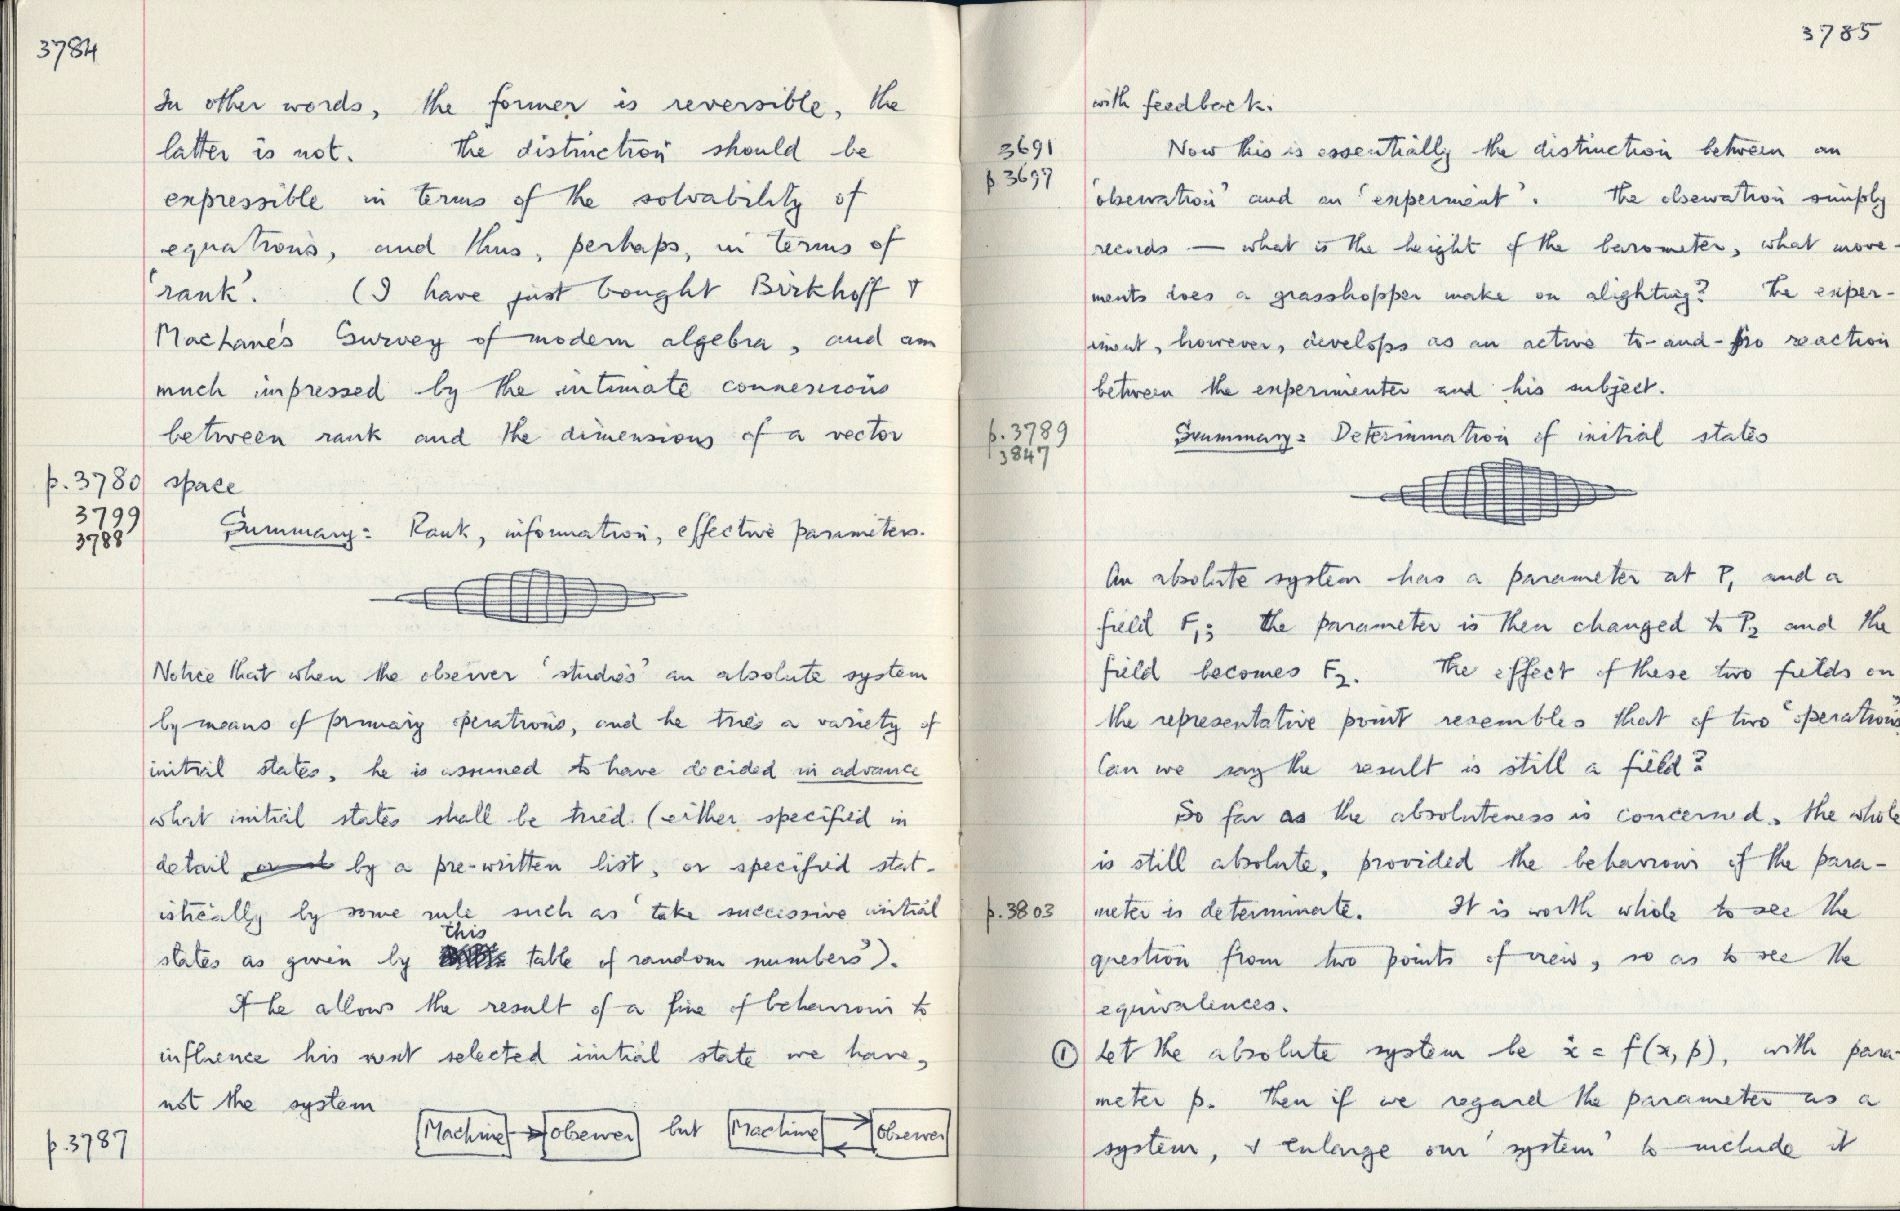 3784
In other words, the former is reversible, the
latter is not. The distinction should be
expressible in terms of the solvability of
equations, and thus, perhaps, in terms of
'rank'. (I have just bought Birkhoff &
MacLane's Survey of modern algebra, and am
much impressed by the intimate connexions
between rank and the dimensions of a vector
p.3780 space
3799
3788
Summary: Rank, information, effective parameters.
Notice that when the observer 'studies' an absolute system
by means of primary operations, and he tries a variety of
initial states, he is assumed to have decided in advance
what initial states shall be tried. (either specified in
detail by a pre-written list, or specified stat-
istically by some rule such as 'take successive initial
this
states as given by table of random numbers').
If he allows the result of a line of behaviour to
influence his next selected initial state we have,
not the system
p.3787
Machine → Observer but Machine Observer
3785
with feedback.
3691
p 3697
Now this is essentially the distinction between an
'observation' and an 'experiment'. The observation simply
records — what is the height of the barometer, what move-
ments does a grasshopper make on alighting? The exper-
iment, however, develops as an active to-and-fro reaction
between the experimenter and his subject.
p.3789
3847
Summary: Determination of initial states
An absolute system has a parameter at P₁ and a
field F₁; the parameter is then changed to P₂ and the
field becomes F₂. The effect of these two fields on
the representative point resembles that of two 'operations'
Can we say the result is still a field?
So far as the absoluteness is concerned, the whole
is still absolute, provided the behaviour of the para-
p.3803 meter is determinate. It is worth while to see the
question from two points of view, so as to see the
equivalences.
① Let the absolute system be ẋ = f(x, p), with para-
meter p. Then if we regard the parameter as a
system, & enlarge our 'system' to include it